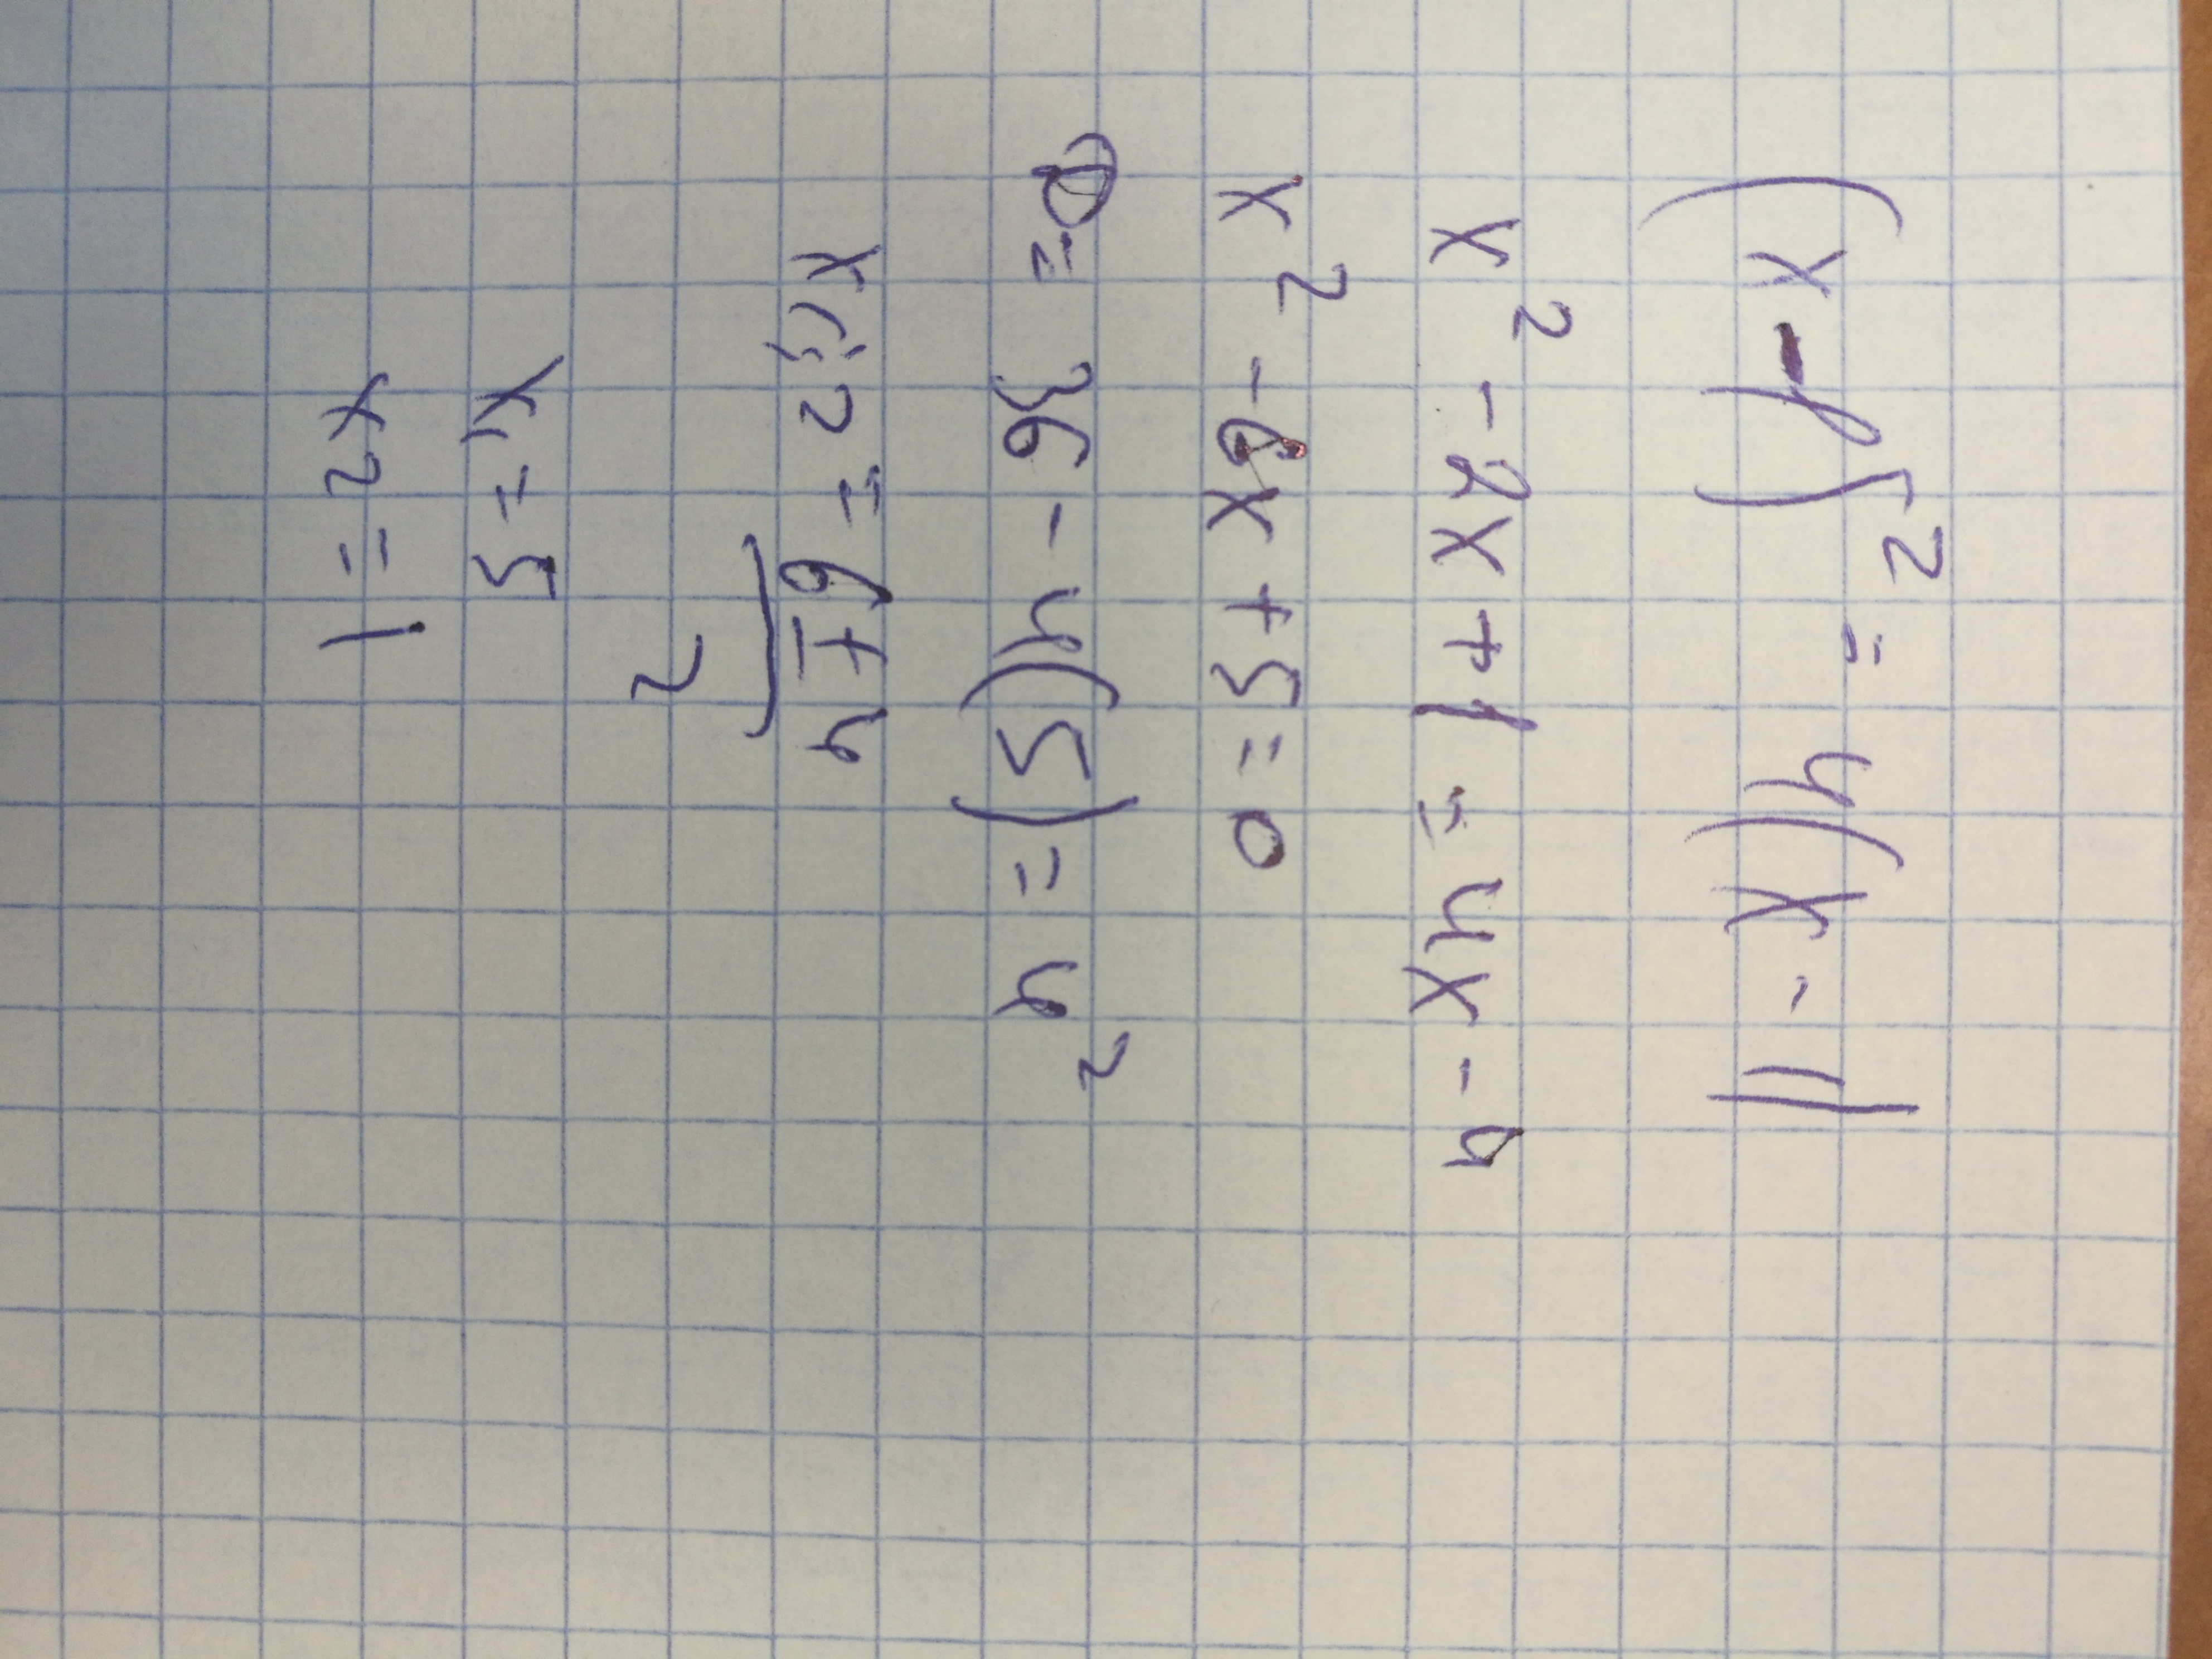 (x-1)² = 4(x-1)
x² - 2x + 1 = 4x - 4
x² - 6x + 5 = 0
D = 36 - 4(5) = 4²
x₁;₂ = 6 ± 4
2
x₁ = 5
x₂ = 1